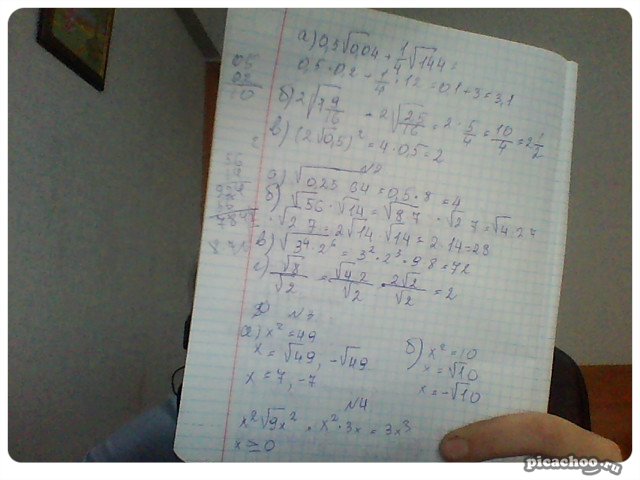 а) 0,5√0,04 + 1/4 √144 =
0,5 · 0,2 + 1/4 · 12 = 0,1 + 3 = 3,1
б) 2√1 9/16 = 2√25/16 = 2 · 5/4 = 10/4 = 2 1/2
в) (2√0,5)² = 4 · 0,5 = 2
№2
а) √0,25 64 = 0,5 · 8 = 4
б) √56 · √14 = √8 7 · √2 7 = √4 · 2 7
· √2 7 = 2√14 · √14 = 2 · 14 = 28
в) √3⁴ · 2⁶ = 3² · 2³ = 9 8 = 72
г) √8/√2 = √4 2/√2 = 2√2/√2 = 2
№3
а) x² = 49
x = √49, -√49
x = 7, -7
б) x² = 10
x = √10
x = -√10
№4
x²√9x² = x² · 3x = 3x³
x ≥ 0
05
02
10
56
picachoo.ru